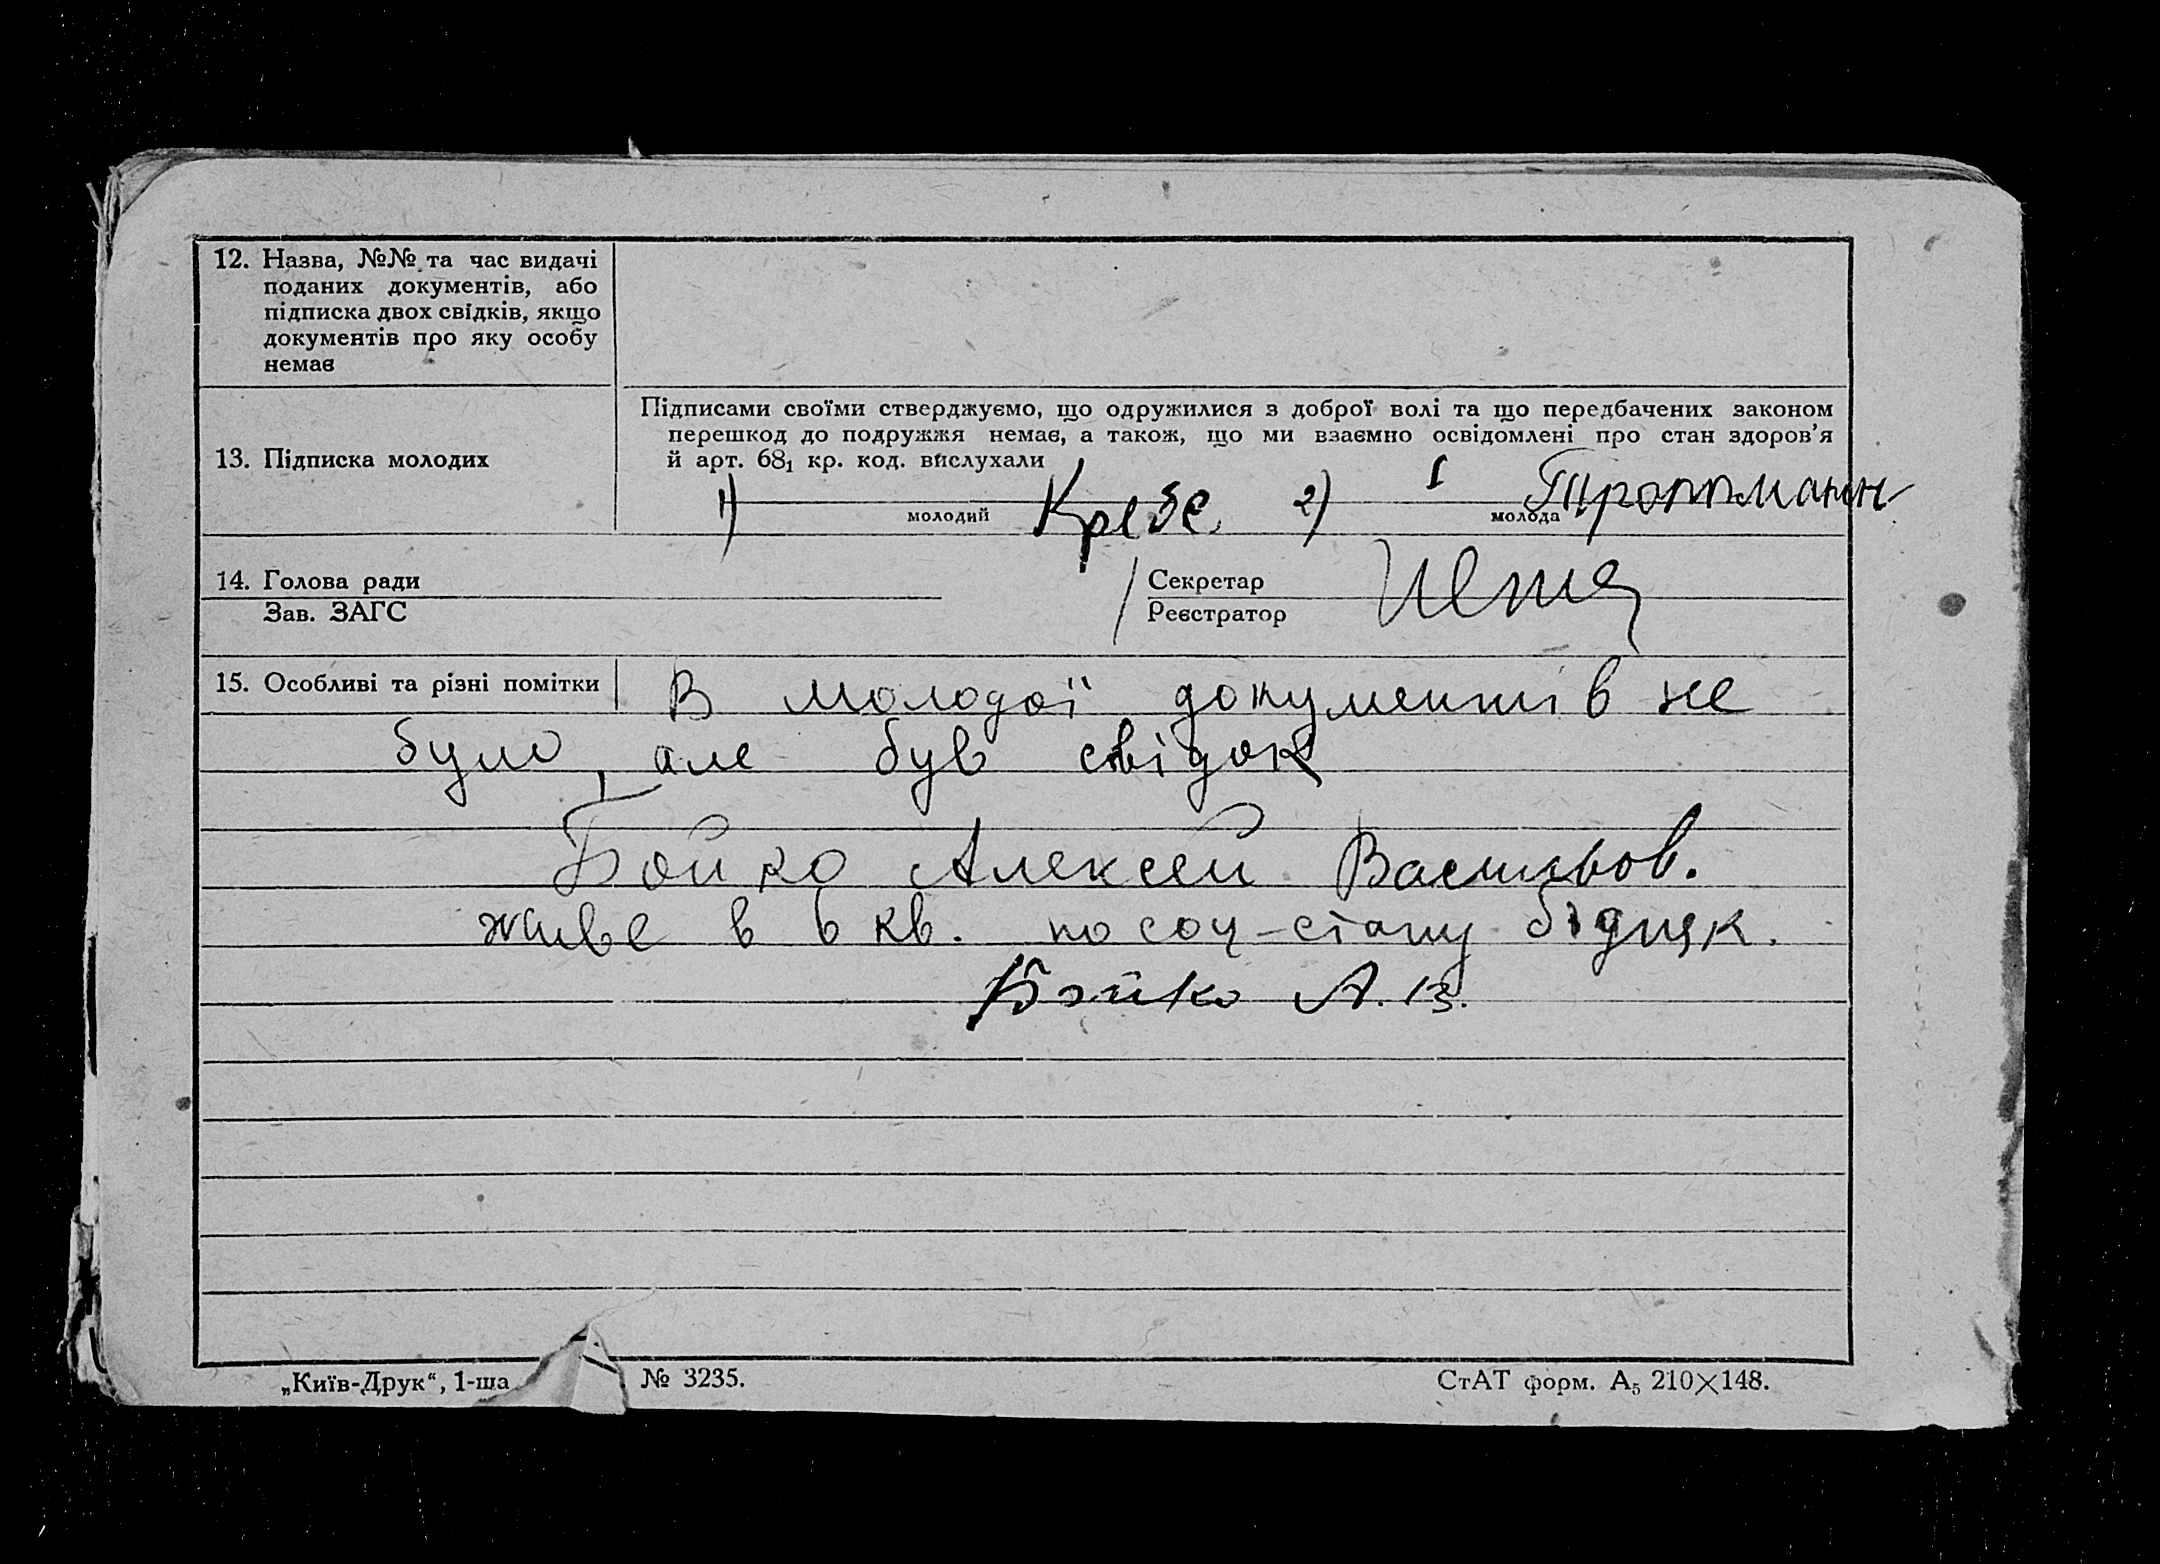 12. Назва, №№ та час видачі
поданих документів, або
підписка двох свідків, якщо
документів про яку особу
немає
13. Підписка молодих
Підписами своїми стверджуємо, що одружилися з доброї волі та що передбачених законом
перешкод до подружжя немає, а також, що ми взаємно освідомлені про стан здоров'я
й арт. 68₁ кр. код. вислухали
1) Кребс 2) І Троппманн
молодий молода
14. Голова ради
Зав. ЗАГС
Секретар
Реєстратор
15. Особливі та різні помітки В молодої документів не
було, але був свідок
Бойко Алексей Васильов.
живе в 6 кв. по соц-стану бідняк.
Бойко А. В.
„Київ-Друк", 1-ша № 3235. СтАТ форм. А₅ 210×148.